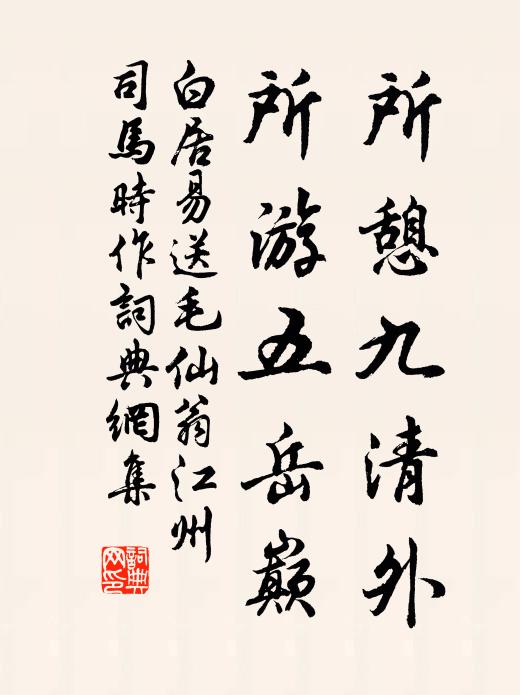 所憩九清外
所游五岳巅
白居易送毛仙翁江州
司馬時作詞典網集
詞典
网印